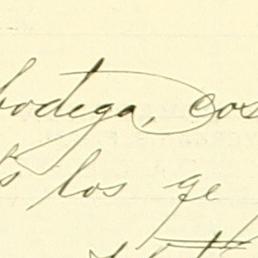 bodega, cos
los ge